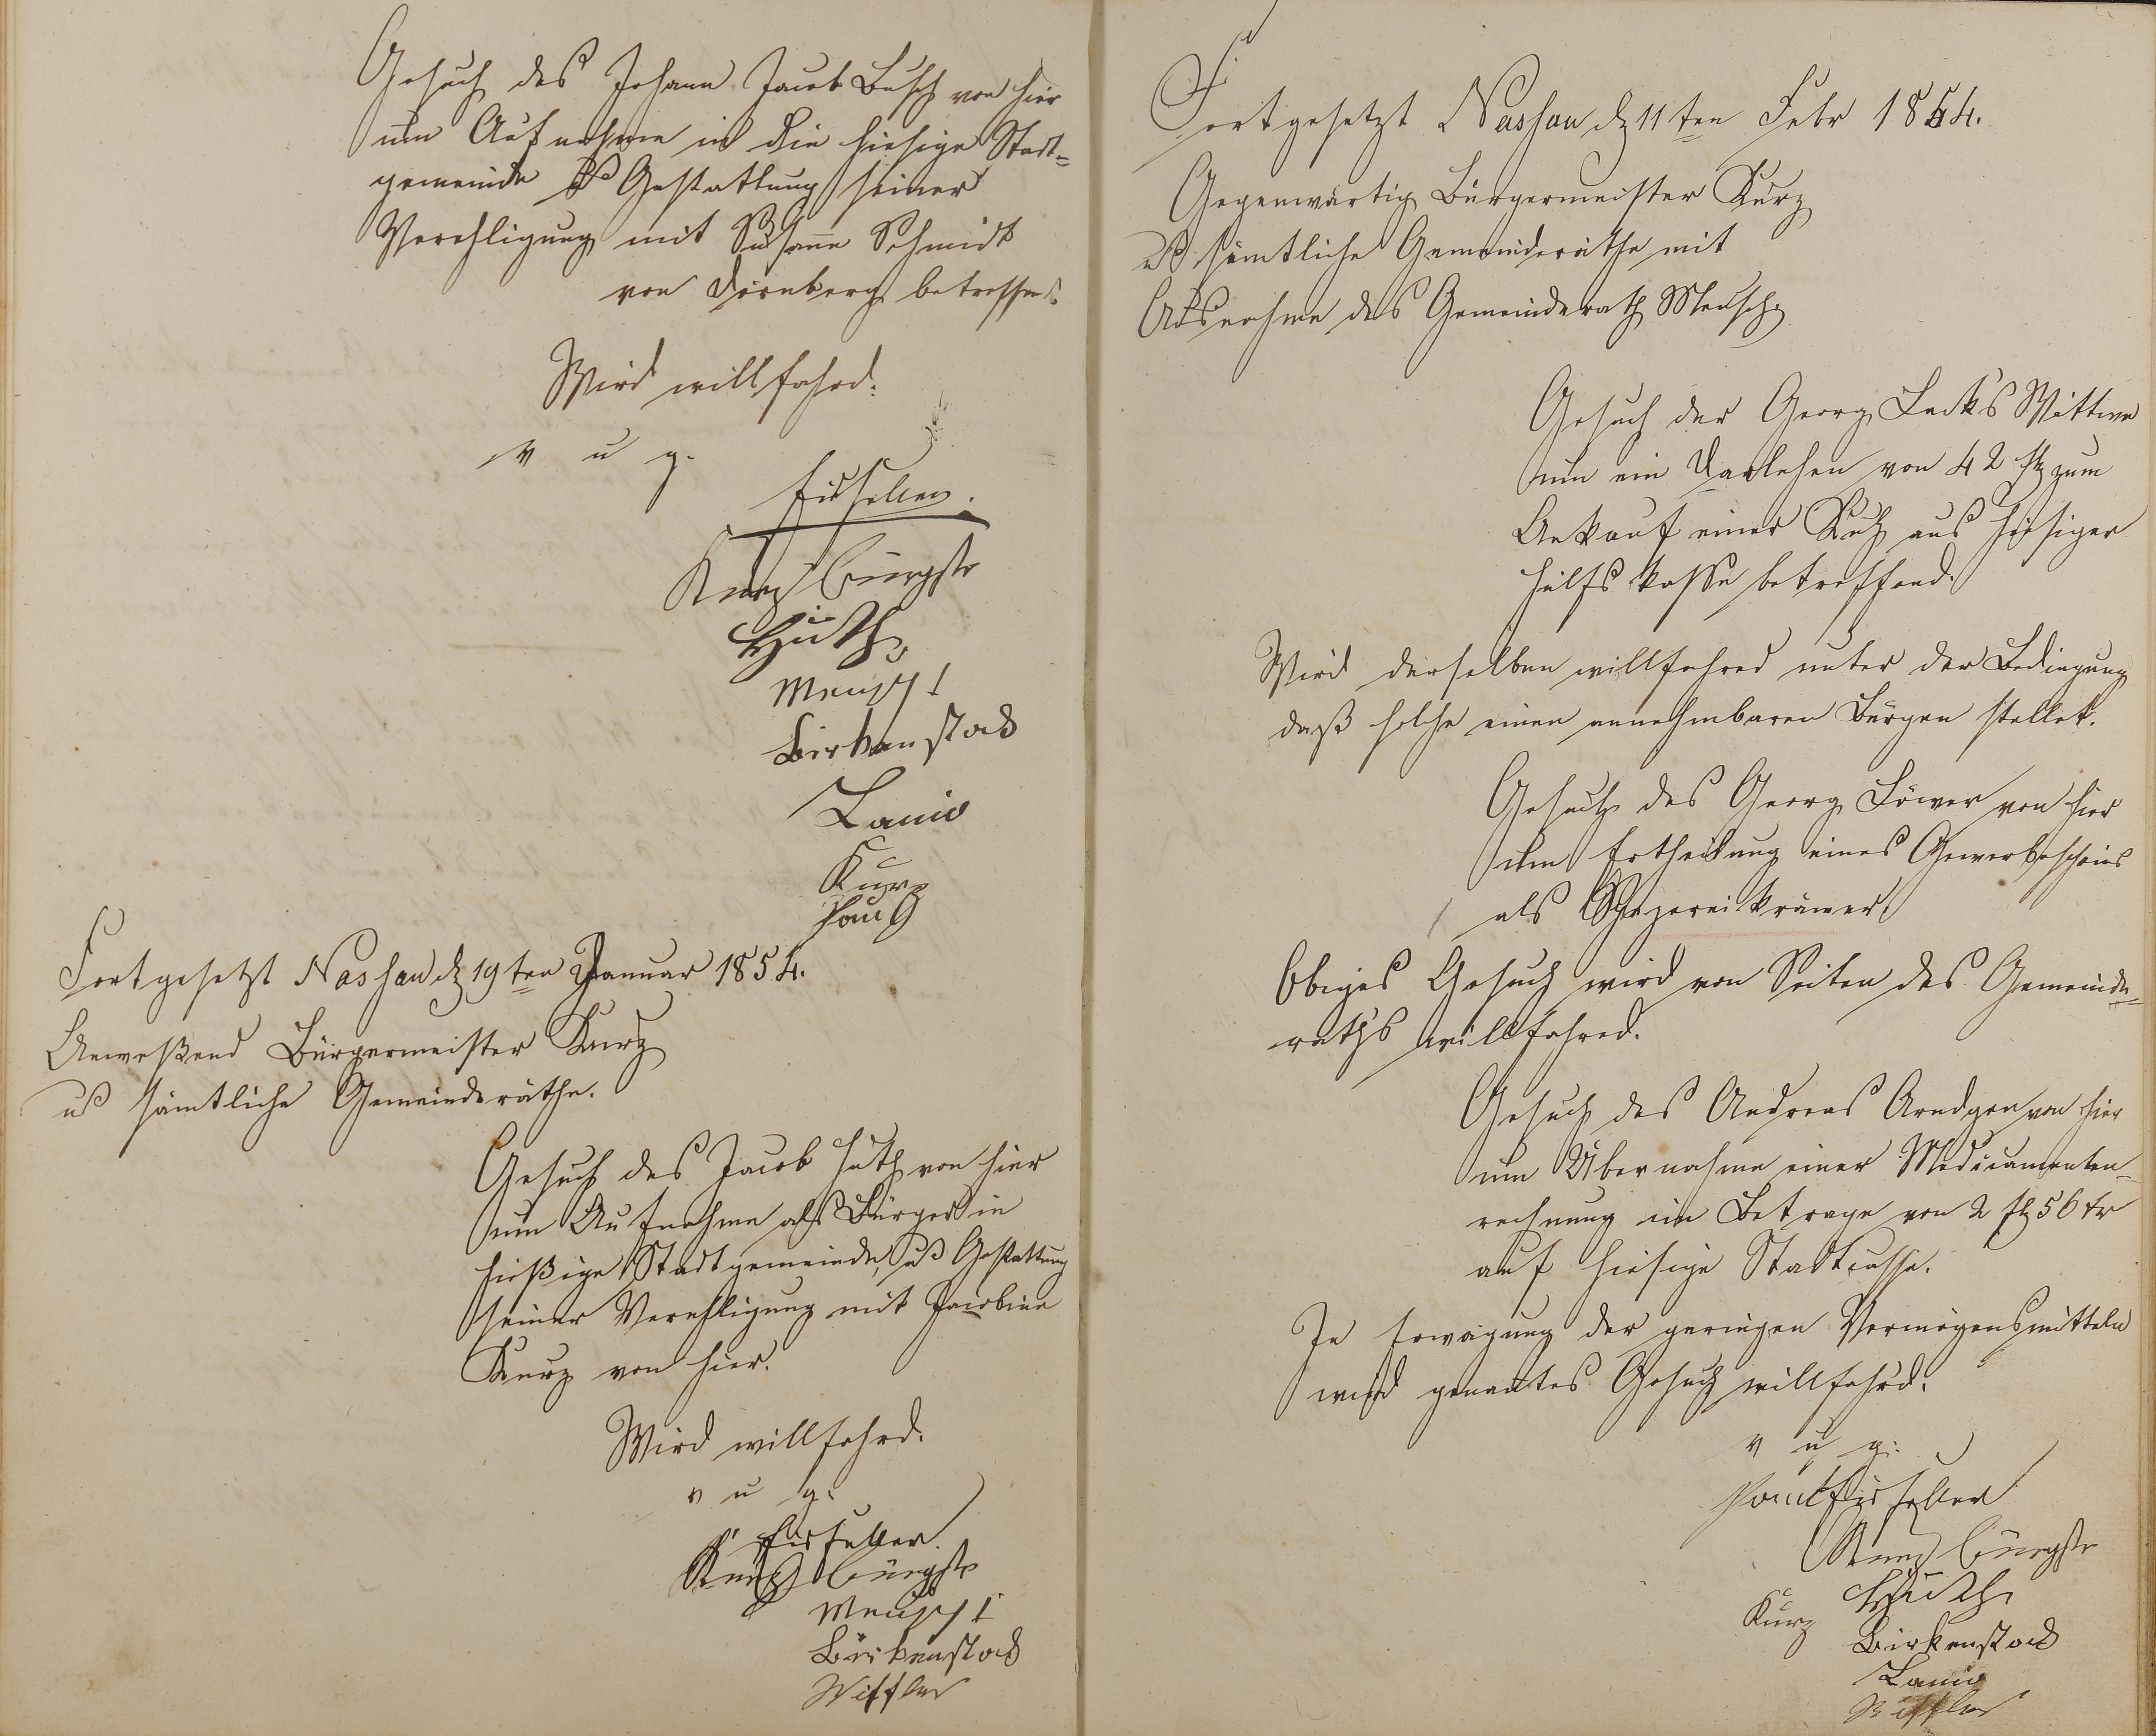 Gesuch des Johann Jacob Busch von hier
um Aufnahme in die hiesige Stadt-
gemeinde & Gestattung seiner
Verehligung mit Susanne Schmidt
von Dörnberg betreffend.
Wird willfahrd.
v u g.
Kurz Bürgstr
Huth
Meusch I
Birkenstock
Lanio
Kurz
Paul
Fortgesetzt Nassau d 19ten Januar 1854.
Anweßend Bürgermeister Kurz
u sämtliche Gemeinderäthe.
Gesuch des Jacob Huth von hier
um Aufnahme als Bürger in
hießige Stadtgemeinde, u Gestattung
seiner Verehligung mit Jacobine
Kurz von hier.
Wird willfahrd.
v u g.
Kurz Bürgstr
Meusch I
Birkenstock
Fortgesetzt Nassau d 11ten Febr 1854.
Gegenwärtig Bürgermeister Kurz
u sämtliche Gemeinderäthe mit
Ausnahme des Gemeinderath Meusch
Gesuch der Georg Wittwe
um ein Darlehen von 42 fl zum
Ankauf einer Kuh aus hiesiger
Hülfskasse betreffend.
Wird derselben willfahred unter der Bedingung
daß solche einen annehmbaren Bürgen stellet.
Gesuch des Georg Löwer von hier
um Ertheilung eines Gewerbescheins
als Spezereikrämer
Obiges Gesuch wird von Seiten des Gemeinde-
raths willfahred.
Gesuch des Andreas Arndgen von hier
um Übernahme einer Medicamenten-
rechnung im Betrage von 2 fl 56 kr
auf hiesige Stadtcasse.
In Erwägung der geringen Vermögensmitteln
wird genantes Gesuch willfahrd.
v u g.
Paul
Kurz Bürgstr
Huth
Kurz
Birkenstock
Lanio